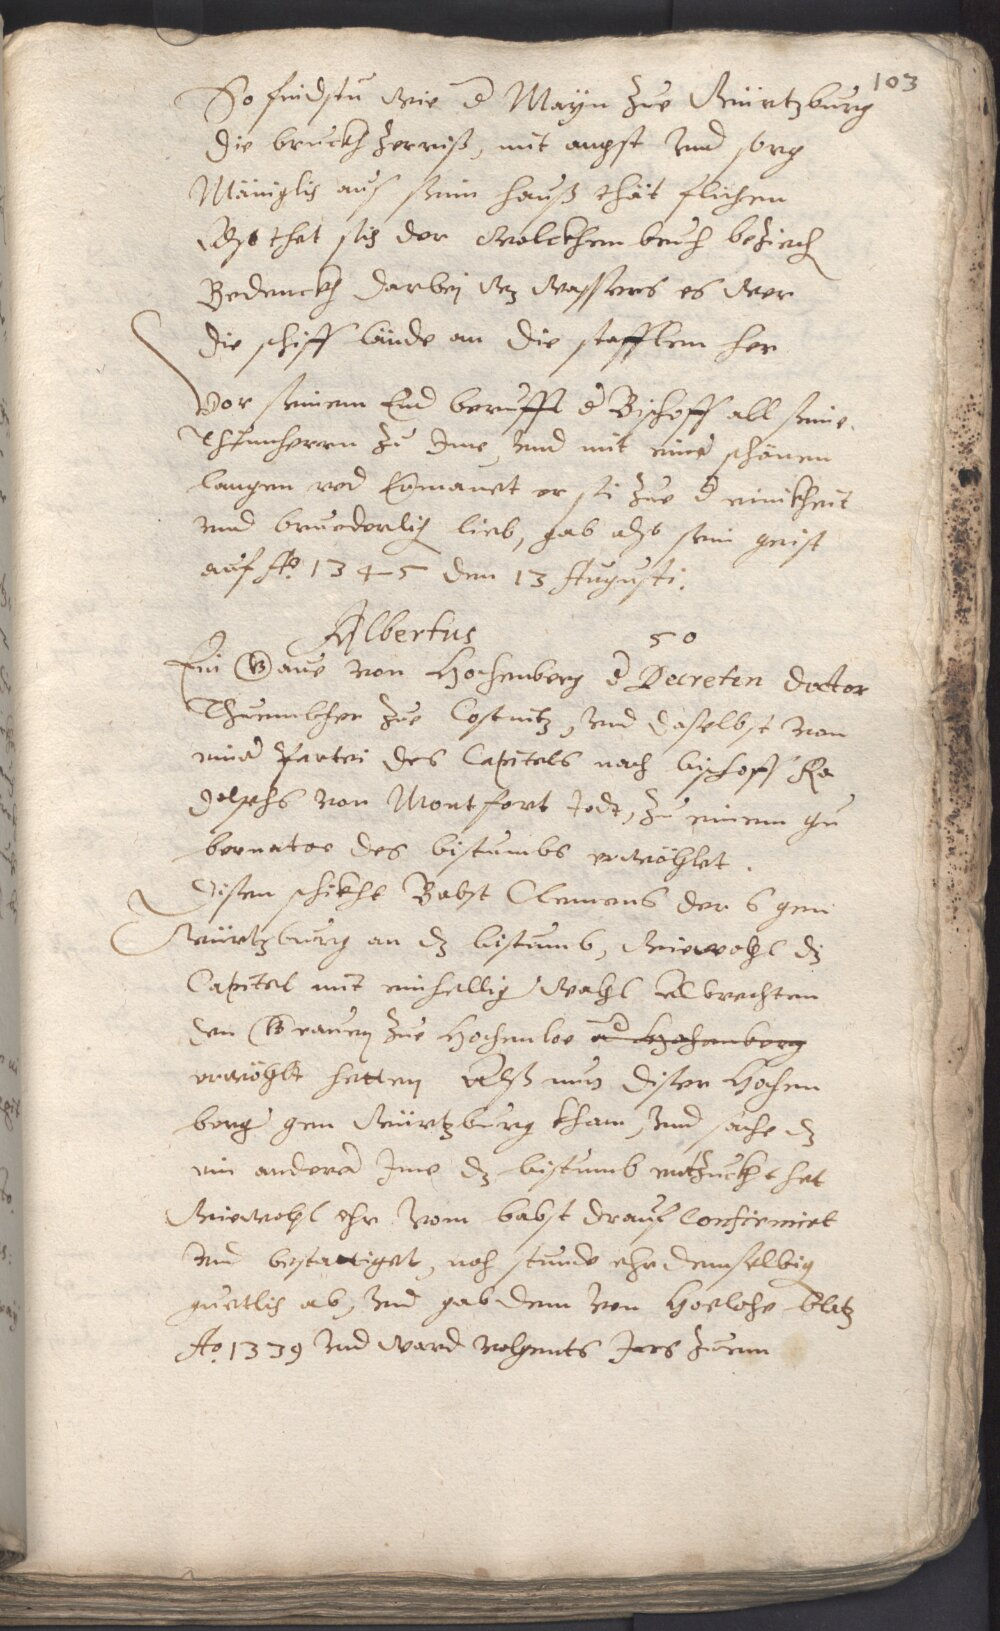 103
So findstu wie d Mayn zue Würtzburg
die bruckh zerriß, mit angst vnd sorg
Mäniglich aus seim hauß thät fliehen
Also thet sich der Wolckhenbruch beziech
Bedenckh darbej wz wassers es wer
die schiff lände an die stafflen her
Vor seinem End berufft d Bischoff all seine
Thumherren zu Ime, vnd mit einer schönen
langen red Ermanet er si zue d einikheit
vnd bruederlich lieb, gab also sein geist
auf Ao 1345 den 13 Augusti.
Albertus 50
Ein Graue von Hochenberg d Decreten doctor
Thuembher zue Costnitz, vnd daselbst von
einer Partei des Capitels nach bischoff Ru
dolphs von Montfort Todt, zu einem gu
bernator des bistumbs erwöhlet.
Disen schikht Babst Clemens der 6 gen
Würtzburg an dz bistumb, wiewohl dz
Capitel mit einhellig Wahl Albrechten
den Grauen zue Hochenloe Hochenberg
erwöhlt hetten Alß nun diser Hochen
berg gen Würtzburg kham, vnd sache dz
ein anderer Ime dz bistumb entzuckht het
Wiewohl ehr vom babst drauf Confirmiet
vnd bestattiget, noch stunde ehr demselbig
guetlich ab, vnd gab dem von Hoelohe blatz
Ao. 1339 vnd ward volgents Jars zuem